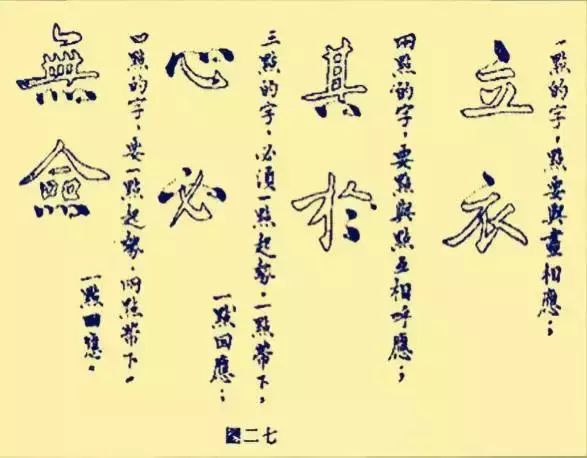 一點的字，點要與畫相應；
立衣
兩點的字，要點與點互相呼應；
其於
三點的字，必須一點起勢，一點帶下，
一點回應；
心必
四點的字，要一點起勢，兩點帶下，
一點回應。
無僉
圖二七